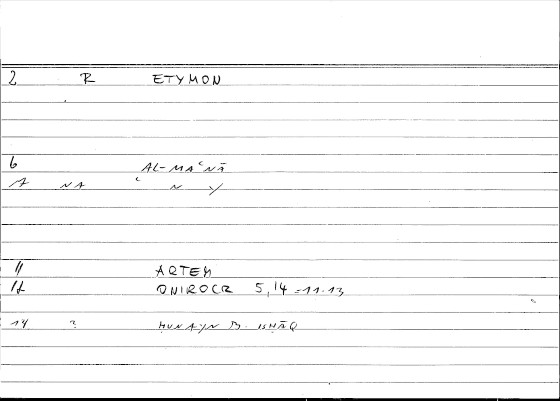 2 R ETYMON
6 AL-MAʿNĀ
A NA ʿ N Y
11 ARTEM
12 ONIROCR 5,14 = 11.13
14 2 HUNAYN B. ISHĀQ